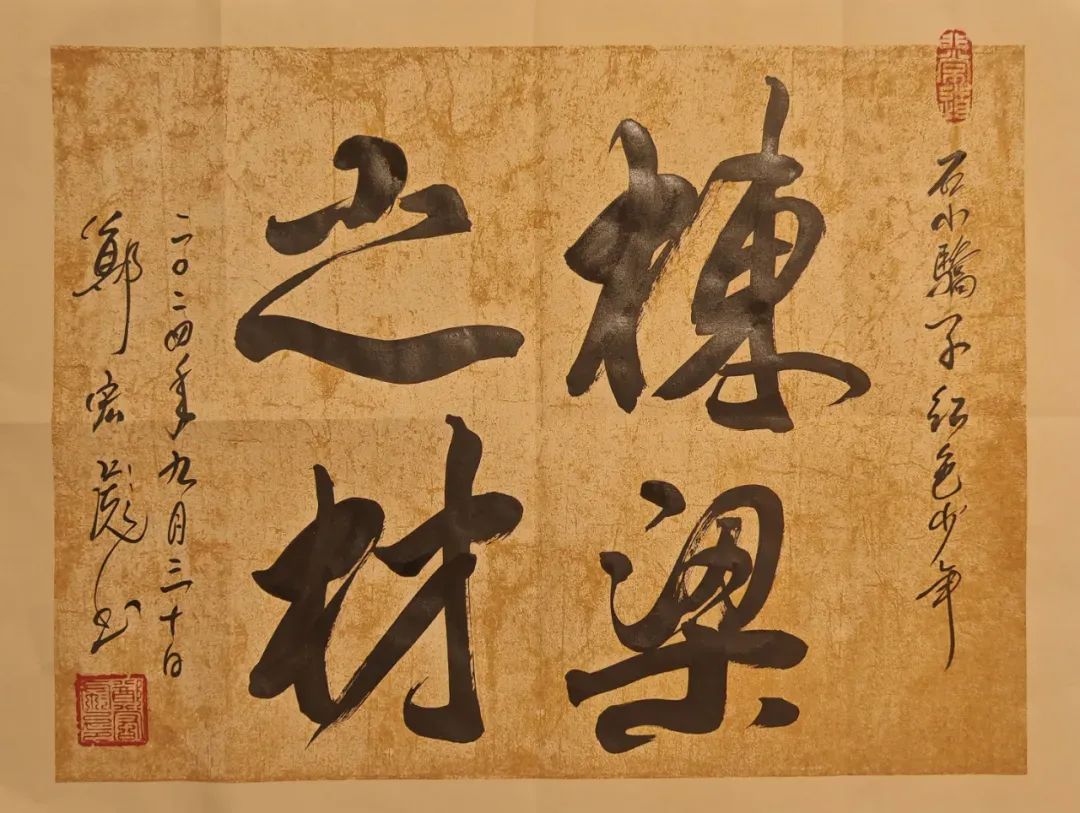 石小驕子红色少年
棟梁
之材
二〇二四年九月三十日
鄭宏彪书